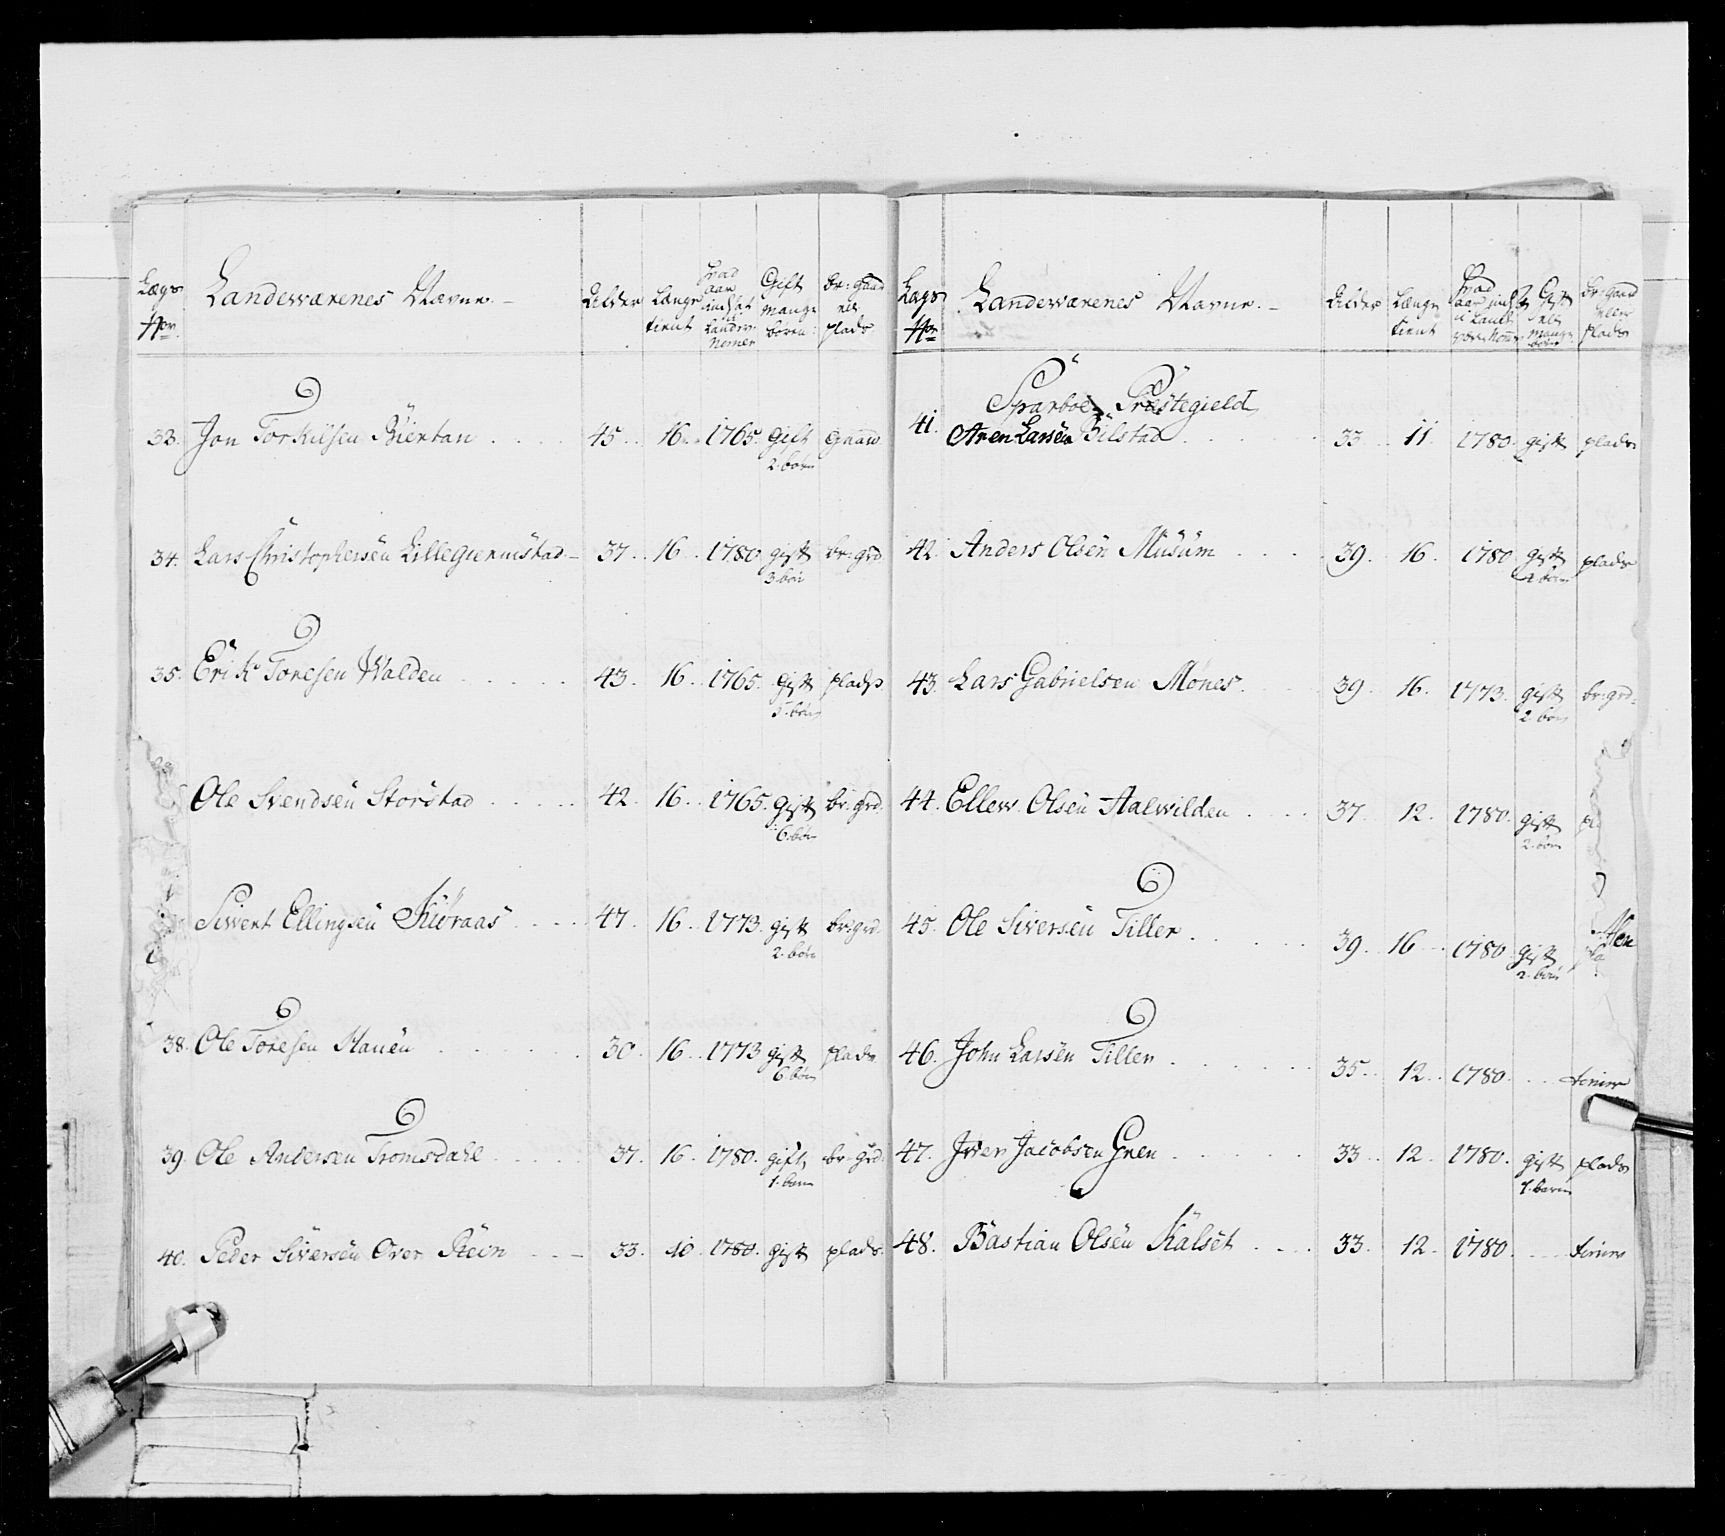 Lægs No. Landeværenes Navne. Alder Længe tient hvad aar indsat i Landev: Nomer Gift mange børn: br: Gaard ell. plads
33. Jon Torkilsen Biertan 45. 16. 1765. Gift Gaard
2. børn
34. Lars Christophersen Lillegiermstad 37. 16. 1780. gift br: grd
3. børn
35. Erik Toresen Walden 43. 16. 1765. Gift plads
5. børn
Ole Svendsen Storstad 42. 16. 1765. Gift br: grd.
6. børn
Sivert Ellingsen Kiøraas 47. 16. 1773. gift br: grd.
2. børn
38. Ole Toresen Mauen 30. 16. 1773 gift plads
6. børn
39. Ole Andersen Tromsdahl 37. 16. 1780. gift br: grd
1. barn
40. Peder Siversen Over Rein 33. 10 1780. gift plads.
Lægs No Landeværenes Navne. Alder Længe tient hvad aar inds: i Land: være Nomr Gift mange børn br: Gaard eller plads
Sparboe Prestegield
41. Aren Larsen Bilstad 33 11. 1780. gift plads
42. Anders Olsen Musum 39. 16. 1780 gift plads
børn
43. Lars Gabrielsen Mønes 39. 16. 1773. gift br: grd.
2. børn
44. Ellew. Olsen Aalwilden 37. 12. 1780. gift pl
2. børn
45. Ole Siversen Tiller 39. 16 1780 gift
2. børn
46. John Larsen Tiller 35. 12. 1780. tiener
47. Iver Jacobsen Gren 33. 12. 1780. gift plads
1. barn
48. Bastian Olsen Kalset 33. 12. 1780. tiener